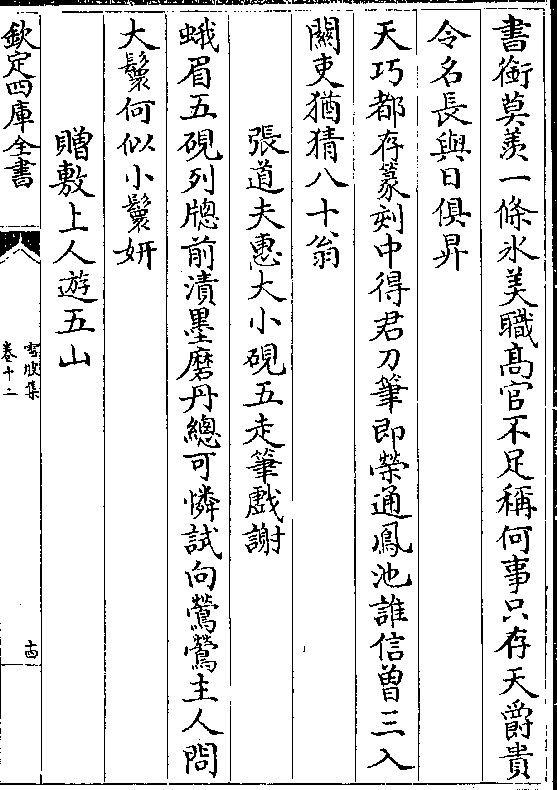 書銜莫羨一條氷美職髙官不足稱何事只存天爵貴
令名長與日俱昇
天巧都存篆刻中得君刀筆即榮通鳳池誰信曽三入
關吏猶猜八十翁
張道夫惠大小硯五走筆戲謝
蛾眉五硯列牕前漬墨磨丹總可憐試向鶯鶯主人問
大鬟何似小鬟妍
贈敷上人遊五山
欽定四庫全書
雪坡集
卷十二
十四